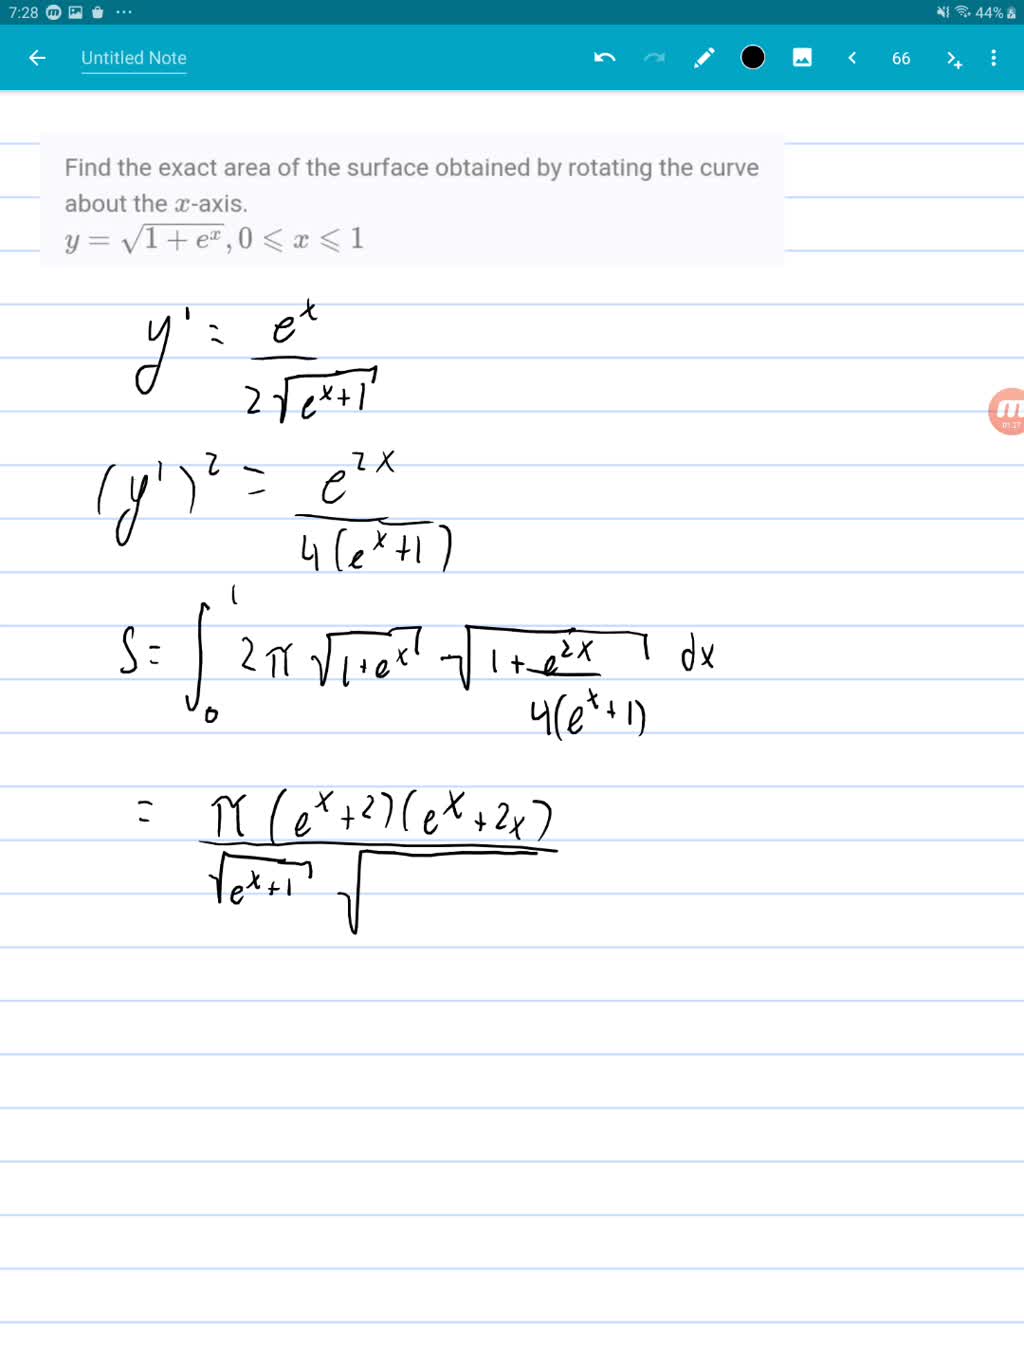 7:28 m ... 44%
Untitled Note 66
Find the exact area of the surface obtained by rotating the curve
about the x-axis.
y = √(1 + e^x), 0 ⩽ x ⩽ 1
y' = e^x / (2√(e^x+1))
m
01:27
(y')^2 = e^(2x) / (4(e^x+1))
S = ∫_0^1 2π √(1+e^x) √(1 + e^(2x) / (4(e^x+1))) dx
= π(e^x+2)(e^x+2x) / (√(e^x+1) √ )